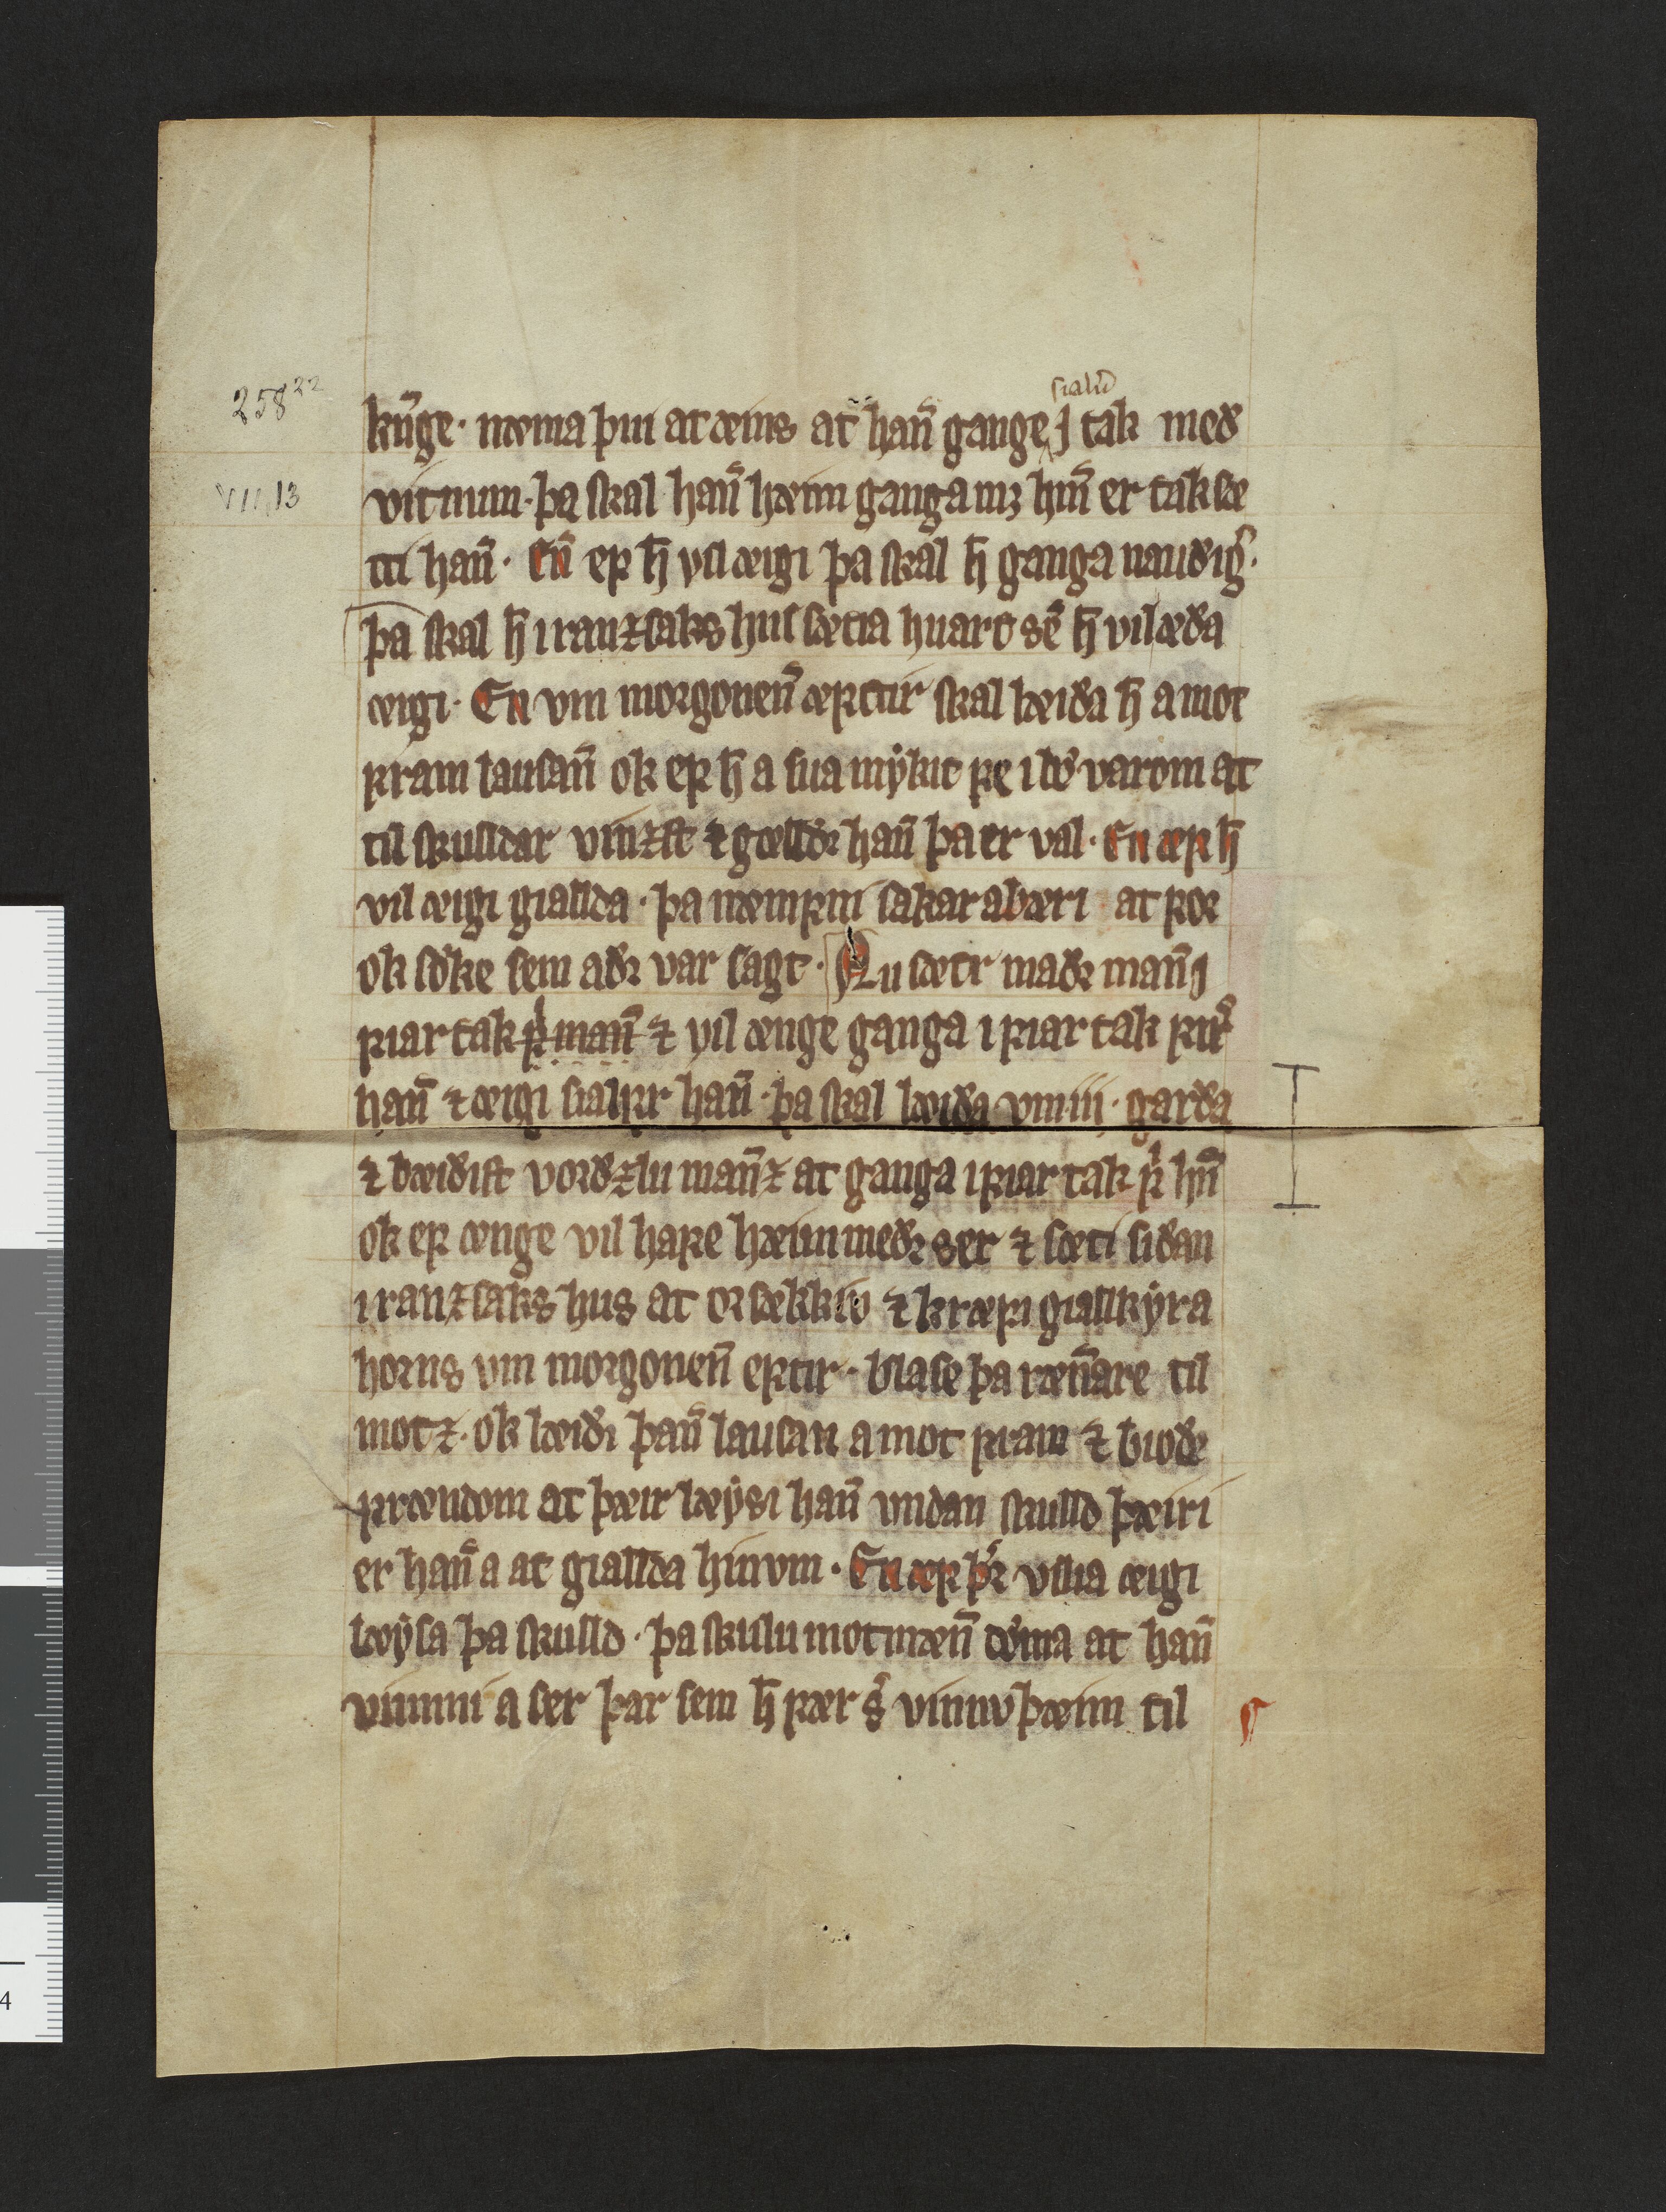 258²²
VII,13
sialfuꝛ
kūge · næma þui at æins at hañ gange j tak með
vitnum · þa skal hañ hæim ganga mꝫ hm̄ er tak sæ
tti hañ · En̄ eꝼ h̄ vil æigi þa skal h̄ ganga nauðigr̄ ·
þa skal h̄ i ranzsaks hus sætia huart sē h̄ vil æða
æigi · En vm morgoneñ æꝼtir skal læiða h̄ a mot
ꝼram lausañ ok eꝼ h̄ a sua mẏkit ꝼe i varom at
til skulldar vinzst ⁊ gælldꝛ hañ þa er val · En æꝼ h̄
vil æigi giallda · þa næmꝼni sakar abæri at ꝼoꝛ
ok søke sem aðꝛ var sagt · Nu sætr maðꝛ mañ j
ꝼiar tak ꝼ mañ ⁊ vil ænge ganga i ꝼiar tak ꝼir̄
hañ ⁊ æigi sialꝼꝛ hañ · þa skal læiða vm · iij · garða
⁊ bæiðist vorðzlu mañz at ganga i ꝼiar tak ꝼ hm̄
ok eꝼ ænge vil haꝼe hæim meðꝛ ser ⁊ sæti siðan
i ranzsaks hus at oꝛsækkiu ⁊ kræꝼi giallkẏra
horns vm morgoneñ eꝼtir · blase þa ræn̄are til
motz · ok læiði þañ lausan a mot ꝼram ⁊ bioðe
ꝼrændom at þæir læẏsi hañ vndan skulld þæiri
er hañ a at giallda hinvm · En æꝼ þr̄ vilia æigi
læẏsa þa skulld · þa skulu motmæn̄ døma at hañ
vinni a ser þar sem h̄ ꝼær s̄ vinnu þæim til